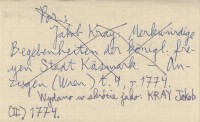 Por.:
Jakob Kray: Merkwürdige
Begebenheiten der königl. fre-
yen Stadt Käsmark
(Wien) t. 4, r. 1774.
Wydano w skróc. jako: KRAY Jakob
(II) 1774.